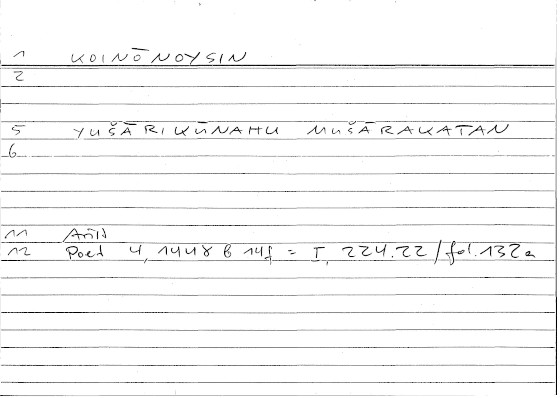 1 KOINŌNOYSIN
2
5 YUŠĀRIKŪNAHU MUŠĀRAKATAN
6
11 Arist
12 Poet 4, 1448 b 14f = I, 224.22/fol.132a